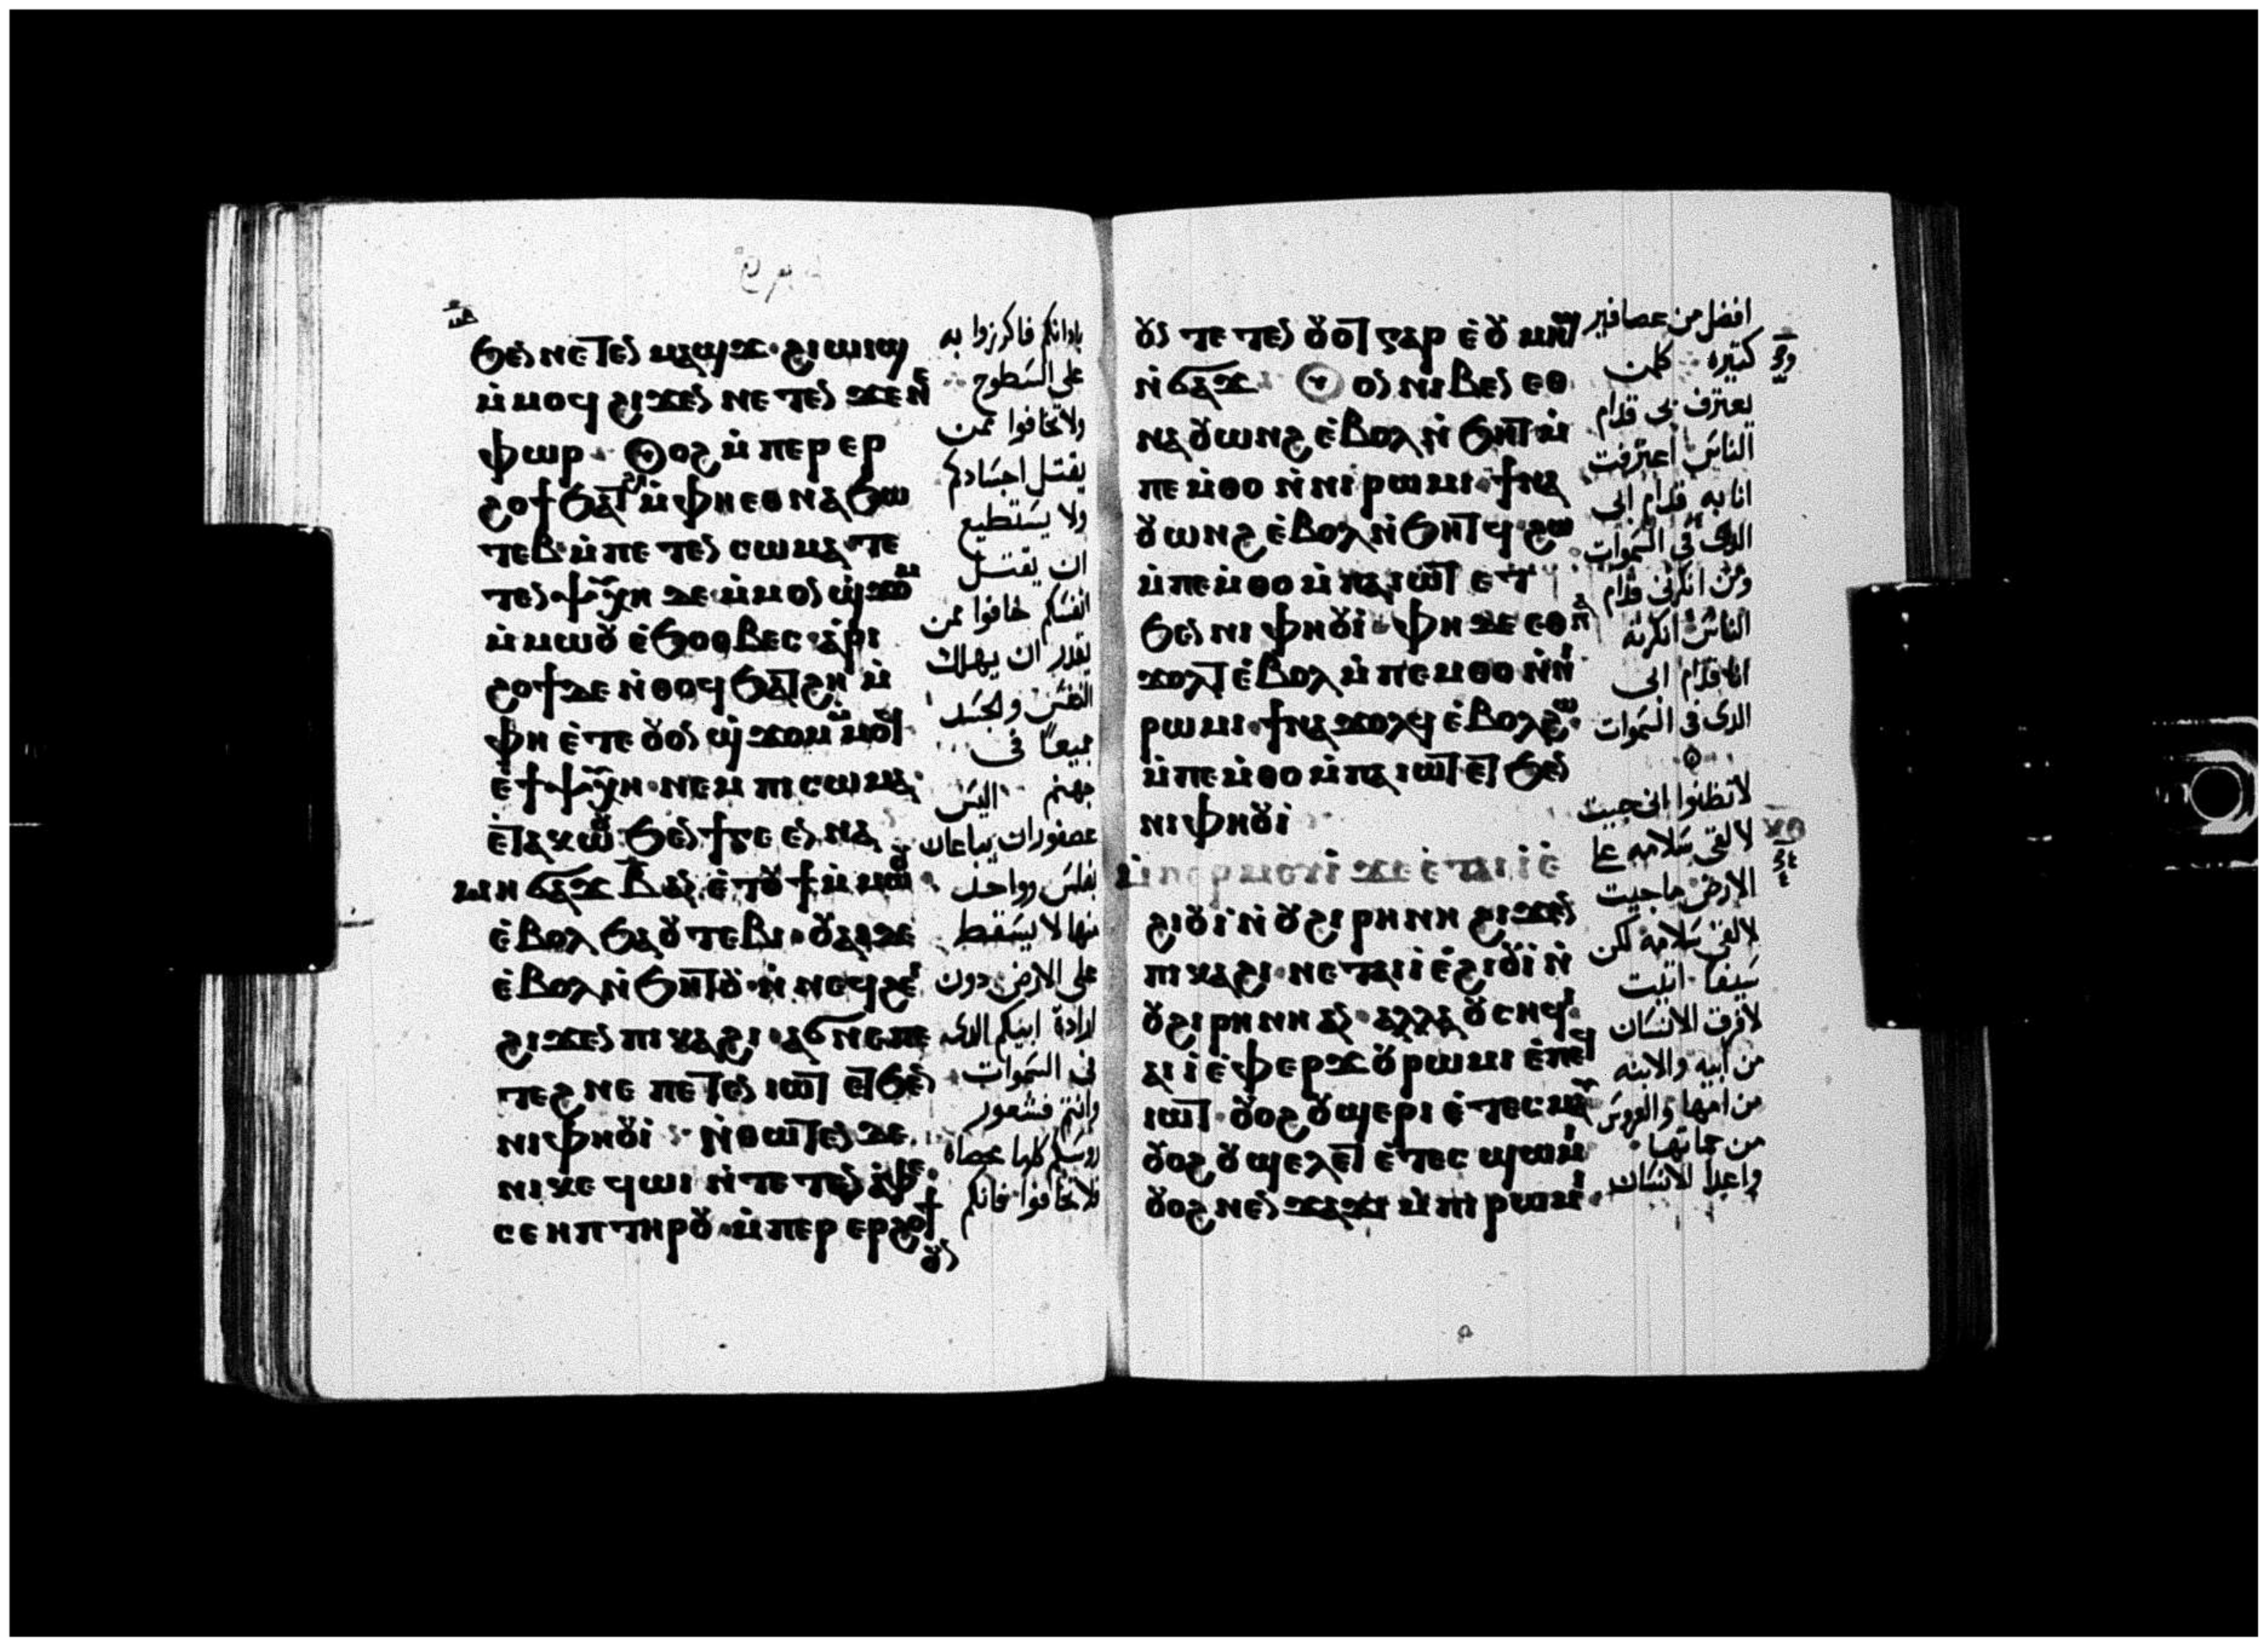 ϧⲉⲛ ⲛⲉⲧⲉⲛ ⲙⲁϣϫ · ϩⲓⲱⲓϣ
ⲙ̀ⲙⲟϥ ϩⲓϫⲉⲛ ⲛⲉⲧⲉⲛ ϫⲉⲛⲉ
ⲫⲱⲣ · ⲟⲩⲟϩ ⲙ̀ⲡⲉⲣ ⲉⲣ
ϩⲟϯ ϧⲁⲧϩⲏ ⲙ̀ⲫⲏ ⲉⲑⲛⲁϧⲱ
ⲧⲉⲃ ⲙ̀ⲡⲉⲧⲉⲛ ⲥⲱⲙⲁ · ⲧⲉ
ⲧⲉⲛ ⲯⲩⲭⲏ ⲇⲉ ⲙ̀ⲙⲟⲛ ϣϫⲟⲙ
ⲙ̀ⲙⲱⲟⲩ ⲉ̀ϧⲟⲑⲃⲉⲥ · ⲁ̀ⲣⲓ
ϩⲟϯ ⲇⲉ ⲛ̀ⲑⲟϥ ϧⲁⲧϩⲏ ⲙ̀
ⲫⲏ ⲉ̀ⲧⲉ ⲟⲩⲟⲛ ϣϫⲟⲙ ⲙ̀ⲙⲟϥ
ⲉ̀ϯⲯⲩⲭⲏ · ⲛⲉⲙ ⲡⲓⲥⲱⲙⲁ ·
ⲉ̀ⲧⲁⲕⲱⲟⲩ ϧⲉⲛ ϯⲅⲉⲉⲛⲛⲁ
ⲙⲏ ϭⲁϫ ⲃ̅ ⲁⲛ ⲉ̀ⲧⲟⲩϯ ⲙ̀ⲙⲱⲟⲩ
ⲉ̀ⲃⲟⲗ ϧⲁ ⲟⲩⲧⲉⲃⲓ · ⲟⲩⲁⲓ ⲇⲉ
ⲉ̀ⲃⲟⲗ ⲛ̀ϧⲏⲧⲟⲩ · ⲛ̀ⲛⲉϥϩⲉⲓ
ϩⲓϫⲉⲛ ⲡⲓⲕⲁϩⲓ · ⲁϭⲛⲉ ⲡⲉ
ⲧⲉϩⲛⲉ ⲡⲉⲧⲉⲛ ⲓⲱⲧ ⲉⲧϧⲉⲛ
ⲛⲓⲫⲏⲟⲩⲓ · ⲛ̀ⲑⲱⲧⲉⲛ ⲇⲉ
ⲛⲓⲕⲉ ϥⲱⲓ ⲛ̀ⲧⲉ ⲧⲉⲛ ⲁ̀ⲫⲉ
ⲥⲉⲏⲡ ⲧⲏⲣⲟⲩ · ⲙ̀ⲡⲉⲣ ⲉⲣϩⲟϯ
ⲟⲩⲛ
بادانكم فاكرزوا به
على السطوح
ولاتخافوا ممن
يقتل اجسادكم
ولا يستطيع
ان يقتل
انفسكم خافوا ممن
يقدر ان يهلك
النفس والجسد
جميعًا فى
جهنم اليس
عصفوران يباعان
بفلس وواحد
منها لا يسقط
على الارض دون
ارادة ابيكم الدى
فى السموات
وانتم فشعور
روسكم كلها محصاه
فلا تخافوا فانكم
ⲟⲩⲛ ⲧⲉⲧⲉⲛ ⲟⲩⲟⲧ ⲅⲁⲣ ⲉ̀ⲟⲩⲙⲏϣ
ⲛ̀ϭⲁϫ · ⲟⲩⲟⲛ ⲛⲓⲃⲉⲛ ⲉⲑ
ⲛⲁⲟⲩⲱⲛϩ ⲉ̀ⲃⲟⲗ ⲛ̀ϧⲏⲧ ⲙ̀
ⲡⲉⲙ̀ⲑⲟ ⲛ̀ⲛⲓⲣⲱⲙⲓ · ϯⲛⲁ
ⲟⲩⲱⲛϩ ⲉ̀ⲃⲟⲗ ⲛ̀ϧⲏⲧϥ · ϩⲱ
ⲙ̀ⲡⲉⲙ̀ⲑⲟ ⲙ̀ⲡⲁⲓⲱⲧ ⲉⲧ
ϧⲉⲛ ⲛⲓⲫⲏⲟⲩⲓ · ⲫⲏ ⲇⲉ ⲉⲑⲛⲁ
ϫⲟⲗⲧ ⲉ̀ⲃⲟⲗ ⲙ̀ⲡⲉⲙⲑⲟ ⲛ̀ⲛⲓ
ⲣⲱⲙⲓ · ϯⲛⲁϫⲟⲗϥ ⲉ̀ⲃⲟⲗ ϩⲱ
ⲙ̀ⲡⲉⲙ̀ⲑⲟ ⲙ̀ⲡⲁⲓⲱⲧ ⲉⲧϧⲉⲛ
ⲛⲓⲫⲏⲟⲩⲓ
ⲙ̀ⲡⲉⲣⲙⲉⲩⲓ ϫⲉ ⲉ̀ⲧⲁⲓⲓ̀ ⲉ̀
ϩⲓⲟⲩⲓ ⲛ̀ⲟⲩϩⲓⲣⲏⲛⲏ ϩⲓϫⲉⲛ
ⲡⲓⲕⲁϩⲓ · ⲛⲉⲧⲁⲓⲓ̀ ⲉ̀ϩⲓⲟⲩⲓ ⲛ̀
ⲟⲩϩⲓⲣⲏⲛⲏ ⲁⲛ · ⲁⲗⲗⲁ ⲟⲩⲥⲏϥⲓ
ⲁⲓⲓ̀ ⲉ̀ⲫⲉⲣϫ ⲟⲩⲣⲱⲙⲓ ⲉ̀ⲡⲉϥ
ⲓⲱⲧ · ⲟⲩⲟϩ ⲟⲩϣⲉⲣⲓ ⲉ̀ⲧⲉⲥⲙⲁⲩ
ⲟⲩⲟϩ ⲟⲩϣⲉⲗⲉⲧ ⲉ̀ⲧⲉⲥ ϣⲱⲙⲓ
ⲟⲩⲟϩ ⲛⲉⲛ ϫⲁϫⲓ ⲙ̀ⲡⲓⲣⲱⲙⲓ ·
افضل من عصافير
كتيره كلمن
يعترف بى قدام
الناس اعترفت
انا به قدام ابى
الدى فى السموات
ومن انكرنى قدام
الناس انكرته
انا قدام ابى
الدى فى السموات
لا تظنوا انى جيت
لالقى سلامه على
الارض ما جيت
لالقى سلامه لكن
سيفا اتيت
لافرق الانسان
من ابيه والابنه
من امها والعروس
من حماتها
واعدا الانسان